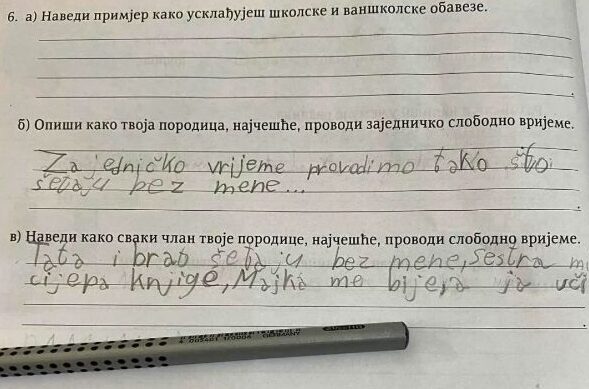 6. а) Наведи примјер како усклађујеш школске и ваншколске обавезе.
б) Опиши како твоја породица, најчешће, проводи заједничко слободно вријеме.
Zajedničko vrijeme provodimo tako što
šetaju bez mene...
в) Наведи како сваки члан твоје породице, најчешће, проводи слободно вријеме.
Tata i brat šetaju bez mene, sestra mi
cijepa knjige, Majka me bije, a ja uči
GERMANY